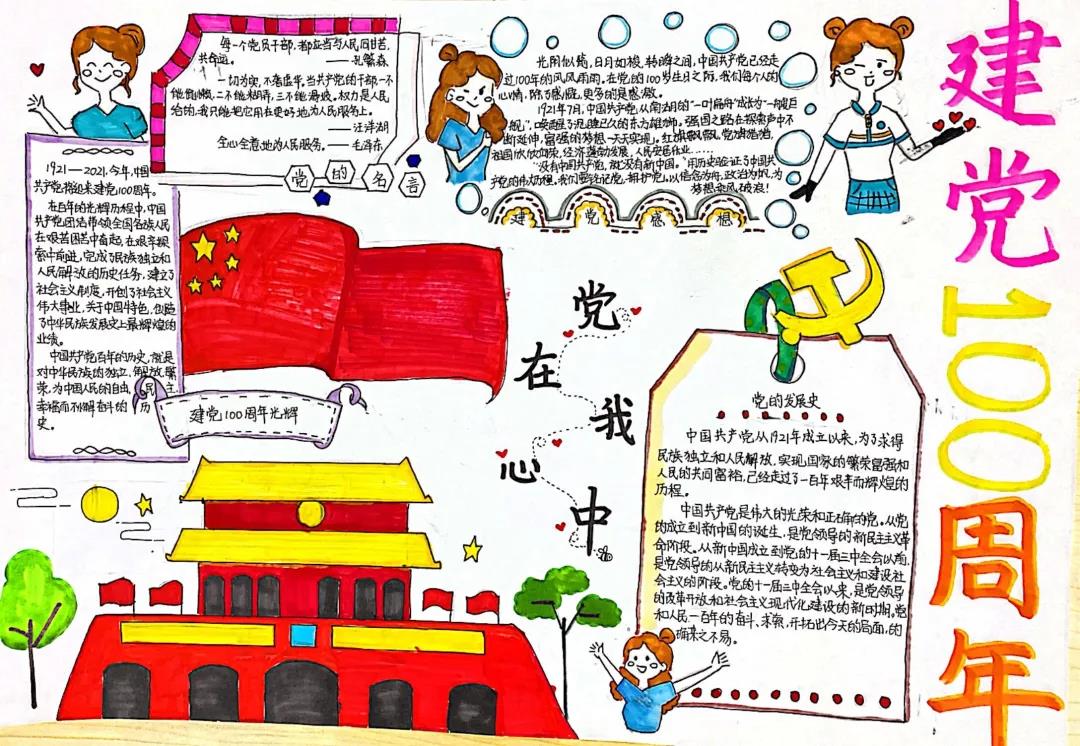 每一个党员干部，都应当与人民同甘苦，
共命运。
——孔繁森
一切为实，不着虚华。当共产党的干部一不
能偷懒，二不能糊弄，三不能滑坡。权力是人民
给的，我只能把它用在更好地为人民服务上。
——汪洋湖
全心全意地为人民服务。——毛泽东
党的名言
光阴似箭，日月如梭，转瞬之间，中国共产党已经走
过100年的风风雨雨。在党的100岁生日之际，我们每个人的
心情，除了感慨，更多的是感激。
1921年7月，中国共产党，从南湖的“一叶扁舟”成长为“一艘巨
舰”，唤醒了沉睡已久的东方雄狮。强国之路在探索中不
断延伸，富强的梦想一天天实现。红旗飘飘，党旗猎猎，
祖国欣欣向荣，经济蓬勃发展，人民安居乐业……
“没有中国共产党，就没有新中国。”用历史验证了中国共
产党的伟大历程。我们要铭记党，拥护党，以信念为舟，政治为帆，为
梦想乘风破浪！
建党感想
建党100周年
1921—2021，今年，中国
共产党将迎来建党100周年。
在百年的光辉历程中，中国
共产党团结带领全国各族人民
在艰苦困苦中奋起，在艰辛探
索中前进，完成了民族独立和
人民解放的历史任务，建立了
社会主义制度，开创了社会主义
伟大事业，关于中国特色，创造
了中华民族发展史上最辉煌的
业绩。
中国共产党百年的历史，就是
对中华民族的独立、解放、繁
荣，为中国人民的自由、民主、
幸福而不懈奋斗的历
史。
建党100周年光辉
党在我心中
党的发展史
中国共产党从1921年成立以来，为了求得
民族独立和人民解放，实现国家的繁荣富强和
人民的共同富裕，已经走过了一百年艰辛而辉煌的
历程。
中国共产党是伟大的光荣和正确的党。从党
的成立到新中国的诞生，是党领导的新民主义革
命阶段。从新中国成立到党的十一届三中全会以前，
是党领导的从新民主主义转变为社会主义和建设社
会主义的阶段。党的十一届三中全会以来，是党领导
的改革开放和社会主义现代化建设的新时期。党
和人民一百年的奋斗、求索，开拓出今天的局面，的
确来之不易。